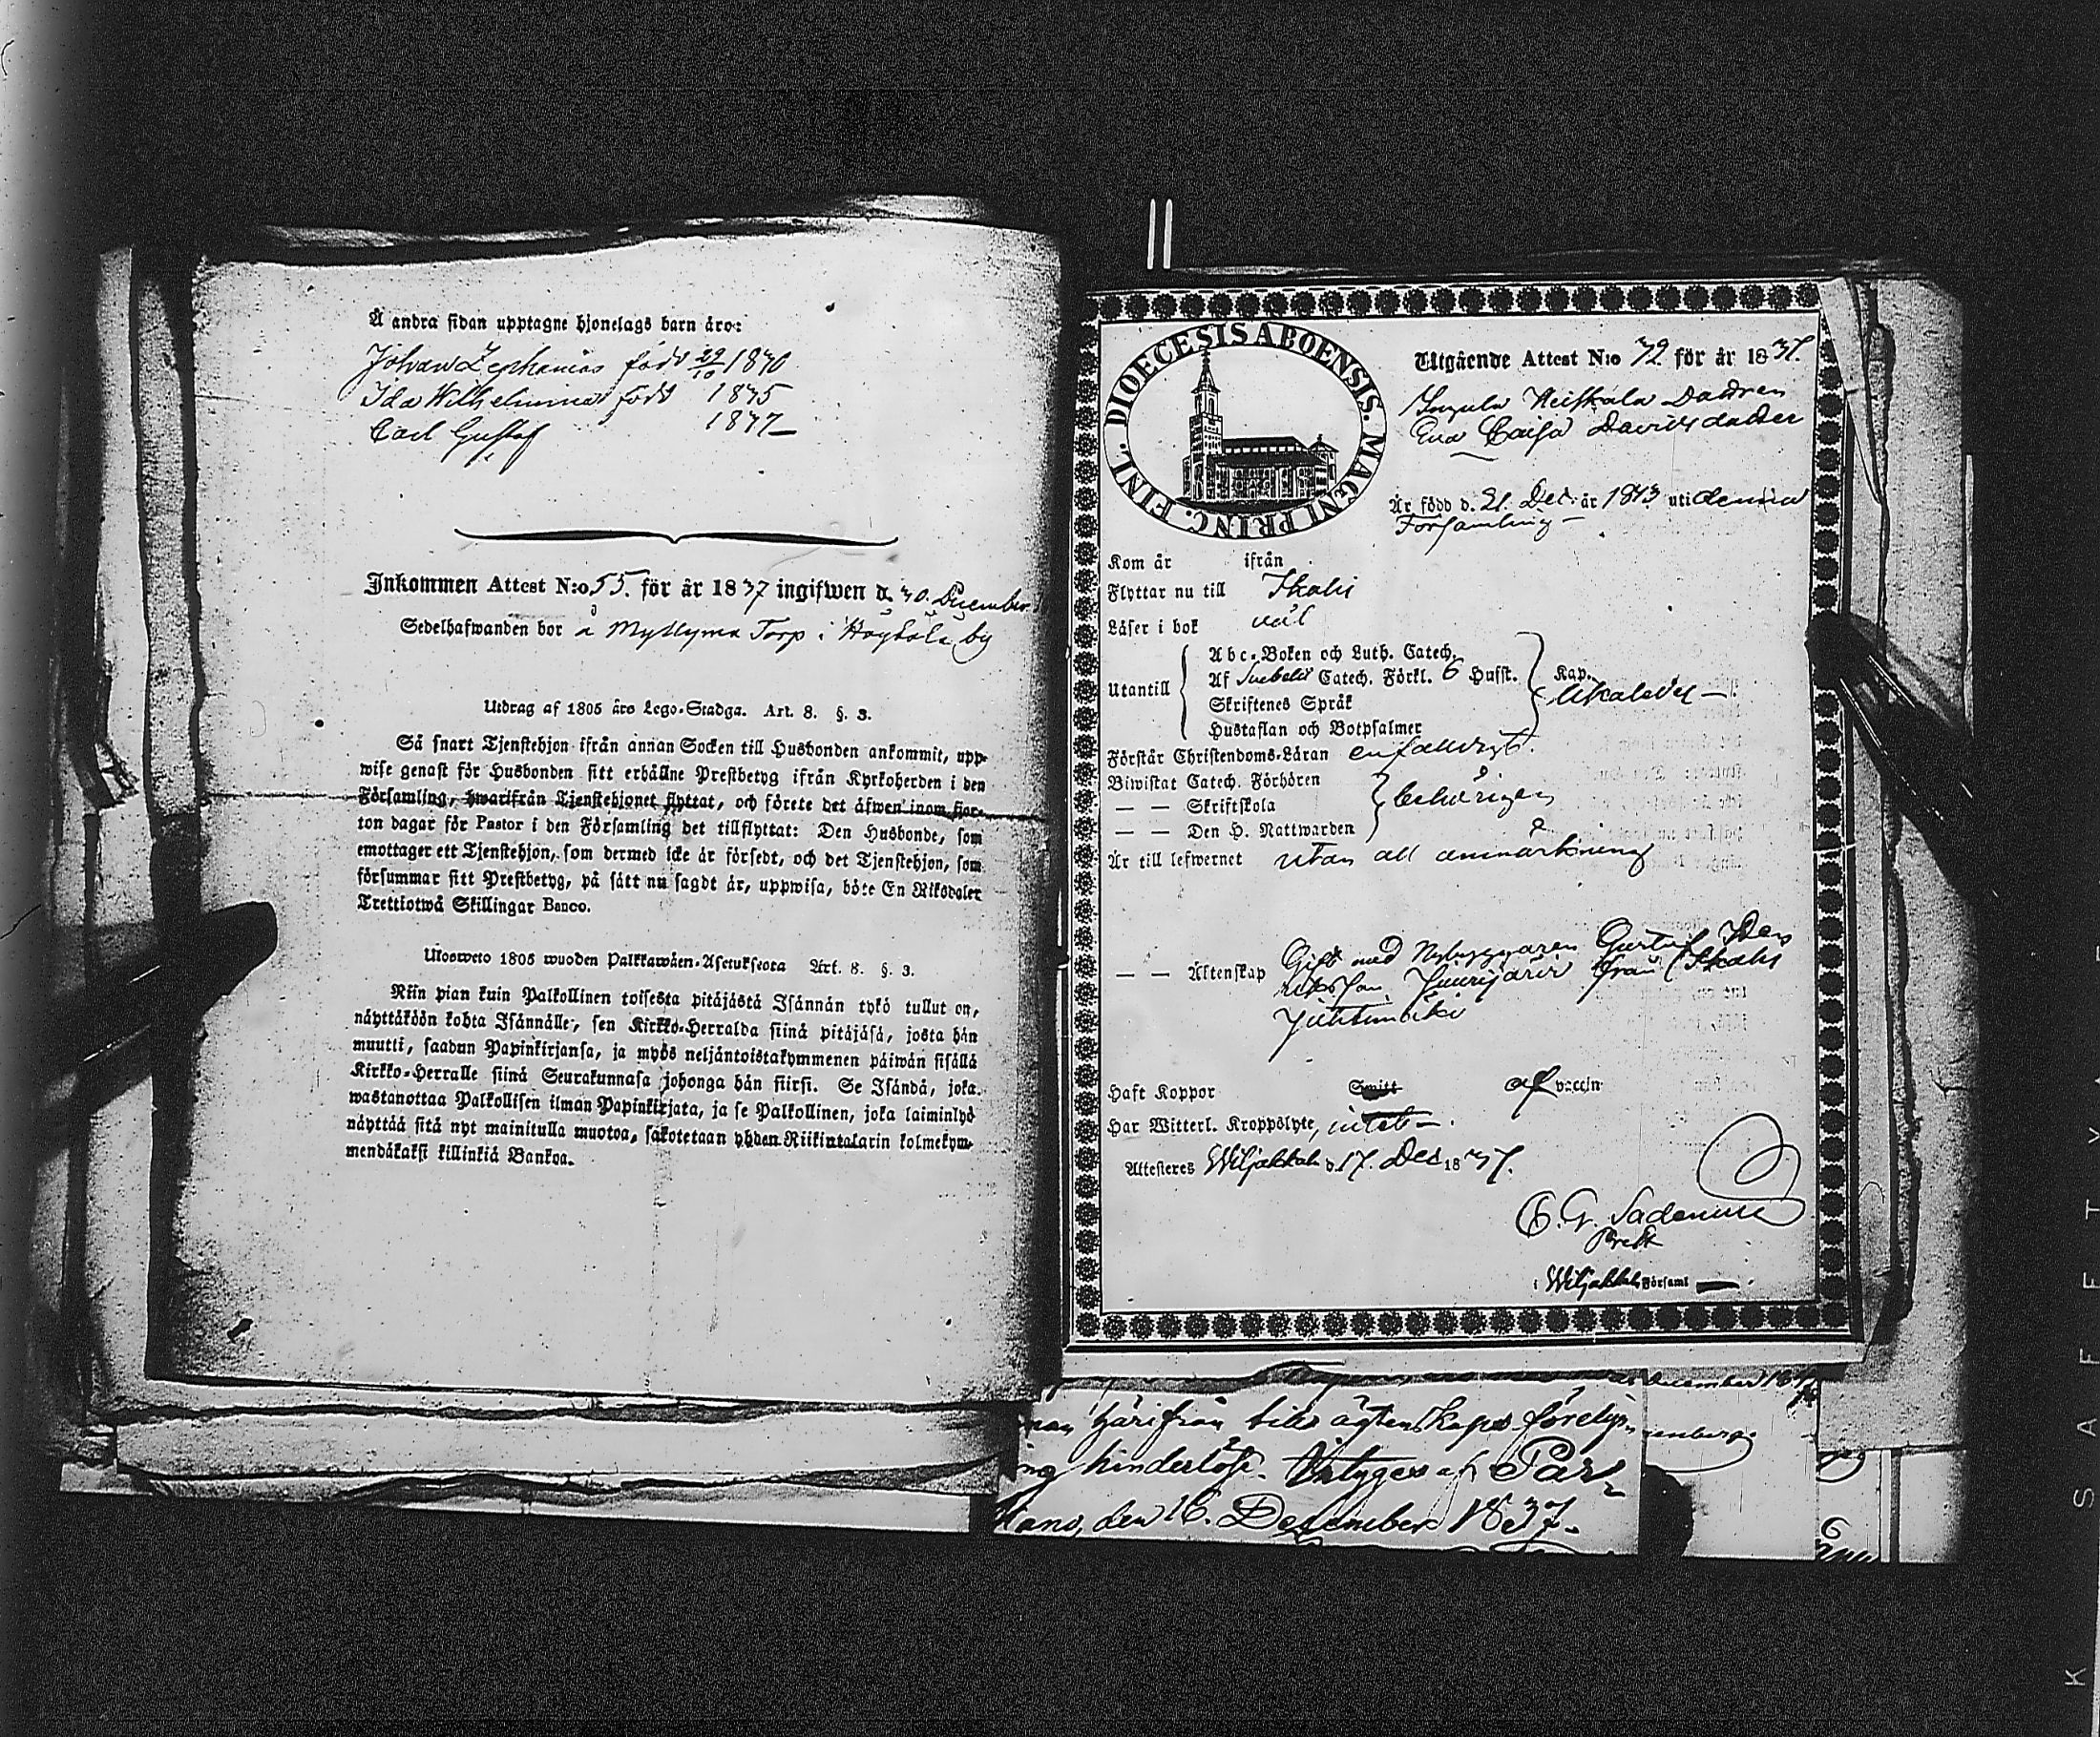 Å andra sidan upptagne hjonelags barn äro:
Johan Zephanias född 29/10 1830
Ida Wilhelmina född 1835
Carl Gustaf 1837
Inkommen Attest N:o 55. för år 1837 ingifwen d. 30. December
Sedelhafwanden bor å Myllyma Torp i Högbåla by
Utdrag af 1805 års Lego-Stadga. Art. 8. §. 3.
Så snart Tjenstehjon ifrån annan Socken till Husbonden ankommit, upp-
wise genast för Husbonden sitt erhållne Prestbetyg ifrån Kyrkoherden i den
Församling, hwarifrån Tjenstehjonet flyttat, och förete det äfwen inom fjor-
ton dagar för Pastor i den Församling det tillflyttat: Den Husbonde, som
emottager ett Tjenstehjon, som dermed icke är försedt, och det Tjenstehjon, som
försummar sitt Prestbetyg, på sätt nu sagdt är, uppwisa, böte En Riksdaler
Trettiotwå Skillingar Banco.
Ulosweto 1805 wuoden Palkkawäen-Asetuksesta Art. 8. §. 3.
Niin pian kuin Palkollinen toisesta pitäjästä Isännän tykö tullut on,
näyttäköön kohta Isännälle, sen Kirkko-Herralda siinä pitäjäsä, josta hän
muutti, saadun Papinkirjansa, ja myös neljäntoistakymmenen päiwän sisällä
Kirkko-Herralle siinä Seurakunnasa johonga hän siirsi. Se Isändä, joka
wastanottaa Palkollisen ilman Papinkirjata, ja se Palkollinen, joka laiminlyö
näyttää sitä nyt mainitulla muotoa, sakotetaan yhden Riikintalarin kolmekym-
mendäkaksi killinkiä Bankoa.
DIOECESIS ABOENSIS. MAGNI PRINC. FINL.
Utgående Attest N:o 72. för år 1837.
Dottren
Eva Caisa Davidsdotter
Är född d. 21. Dec. år 1813 uti denna
Församling
Kom år ifrån
Flyttar nu till Ikalis
Läser i bok väl
Utantill
Abc-Boken och Luth. Catech.
Af Svebelii Catech. Förkl. 6 Husst. Kap.
Skriftenes Språk
Hustaflan och Botpsalmer
Förstår Christendoms-Läran enfaldigt.
Biwistat Catech. Förhören
— — Skriftskola behörigen
— — Den H. Nattwarden
Är till lefwernet utan all anmärkning
— — Äktenskap Gift med Nybyggaren Gustaf
från Ikalis
Haft Koppor Smitt af vaccin
Har Witterl. Kroppslyte, intet —.
Attesteras Wiljakkala d. 17. Dec. 1837.
Prest
i Wiljakkala Församl
härifrån till ägtenskaps förelys-
ning hinderlös. Intygas af Par-
kano, den 16. December 1837.
K SAFETY F